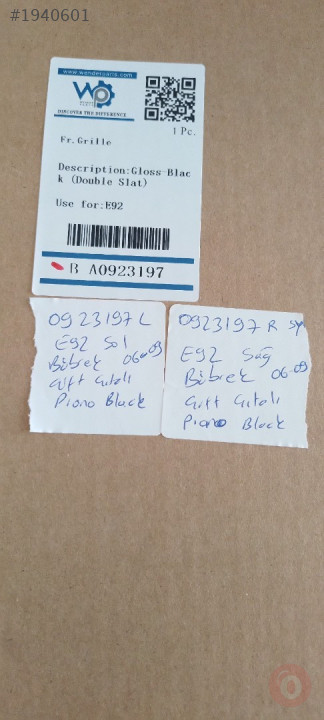 #1940601
www.wonderparts.com
WO
DISCOVER THE DIFFERENCE
1 Pc.
Fr.Grille
Description:Gloss Blac
k (Double Slat)
Use for:E92
R A0923197
0923197 L
E92 Sol
Böbrek 06-09
Çift Çıtalı
Piano Black
0923197 R
E92 Sağ
Böbrek 06-09
Çift Çıtalı
Piano Black